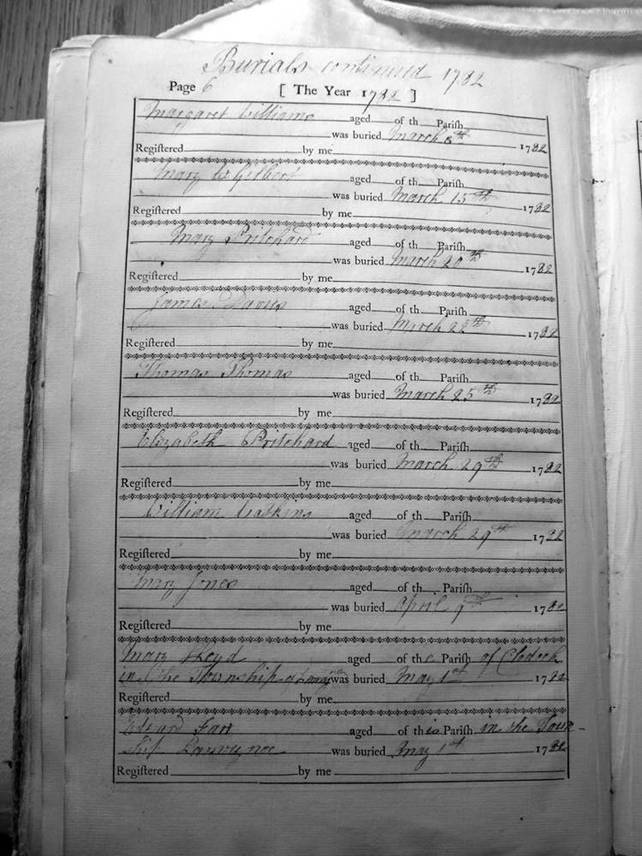 Burials continued 1782
Page 6 [ The Year 1782 ]
Margaret Williams aged of th Parish
was buried March 8th 1782
Registered by me
Mary Gilbert aged of th Parish
was buried March 15th 1782
Registered by me
Mary Pritchard aged of th Parish
was buried March 20th 1782
Registered by me
James Davies aged of th Parish
was buried March 22th 1782
Registered by me
Thomas Thomas aged of th Parish
was buried March 25th 1782
Registered by me
Elizabeth Pritchard aged of th Parish
was buried March 29th 1782
Registered by me
William aged of th Parish
was buried March 29th 1782
Registered by me
Mary Jones aged of th Parish
was buried April 9th 1782
Registered by me
Mary aged of the Parish of Clodock
in the Township of was buried May 1st 1782
Registered by me
aged of this Parish in the Town-
was buried May 1st 1782
Registered by me